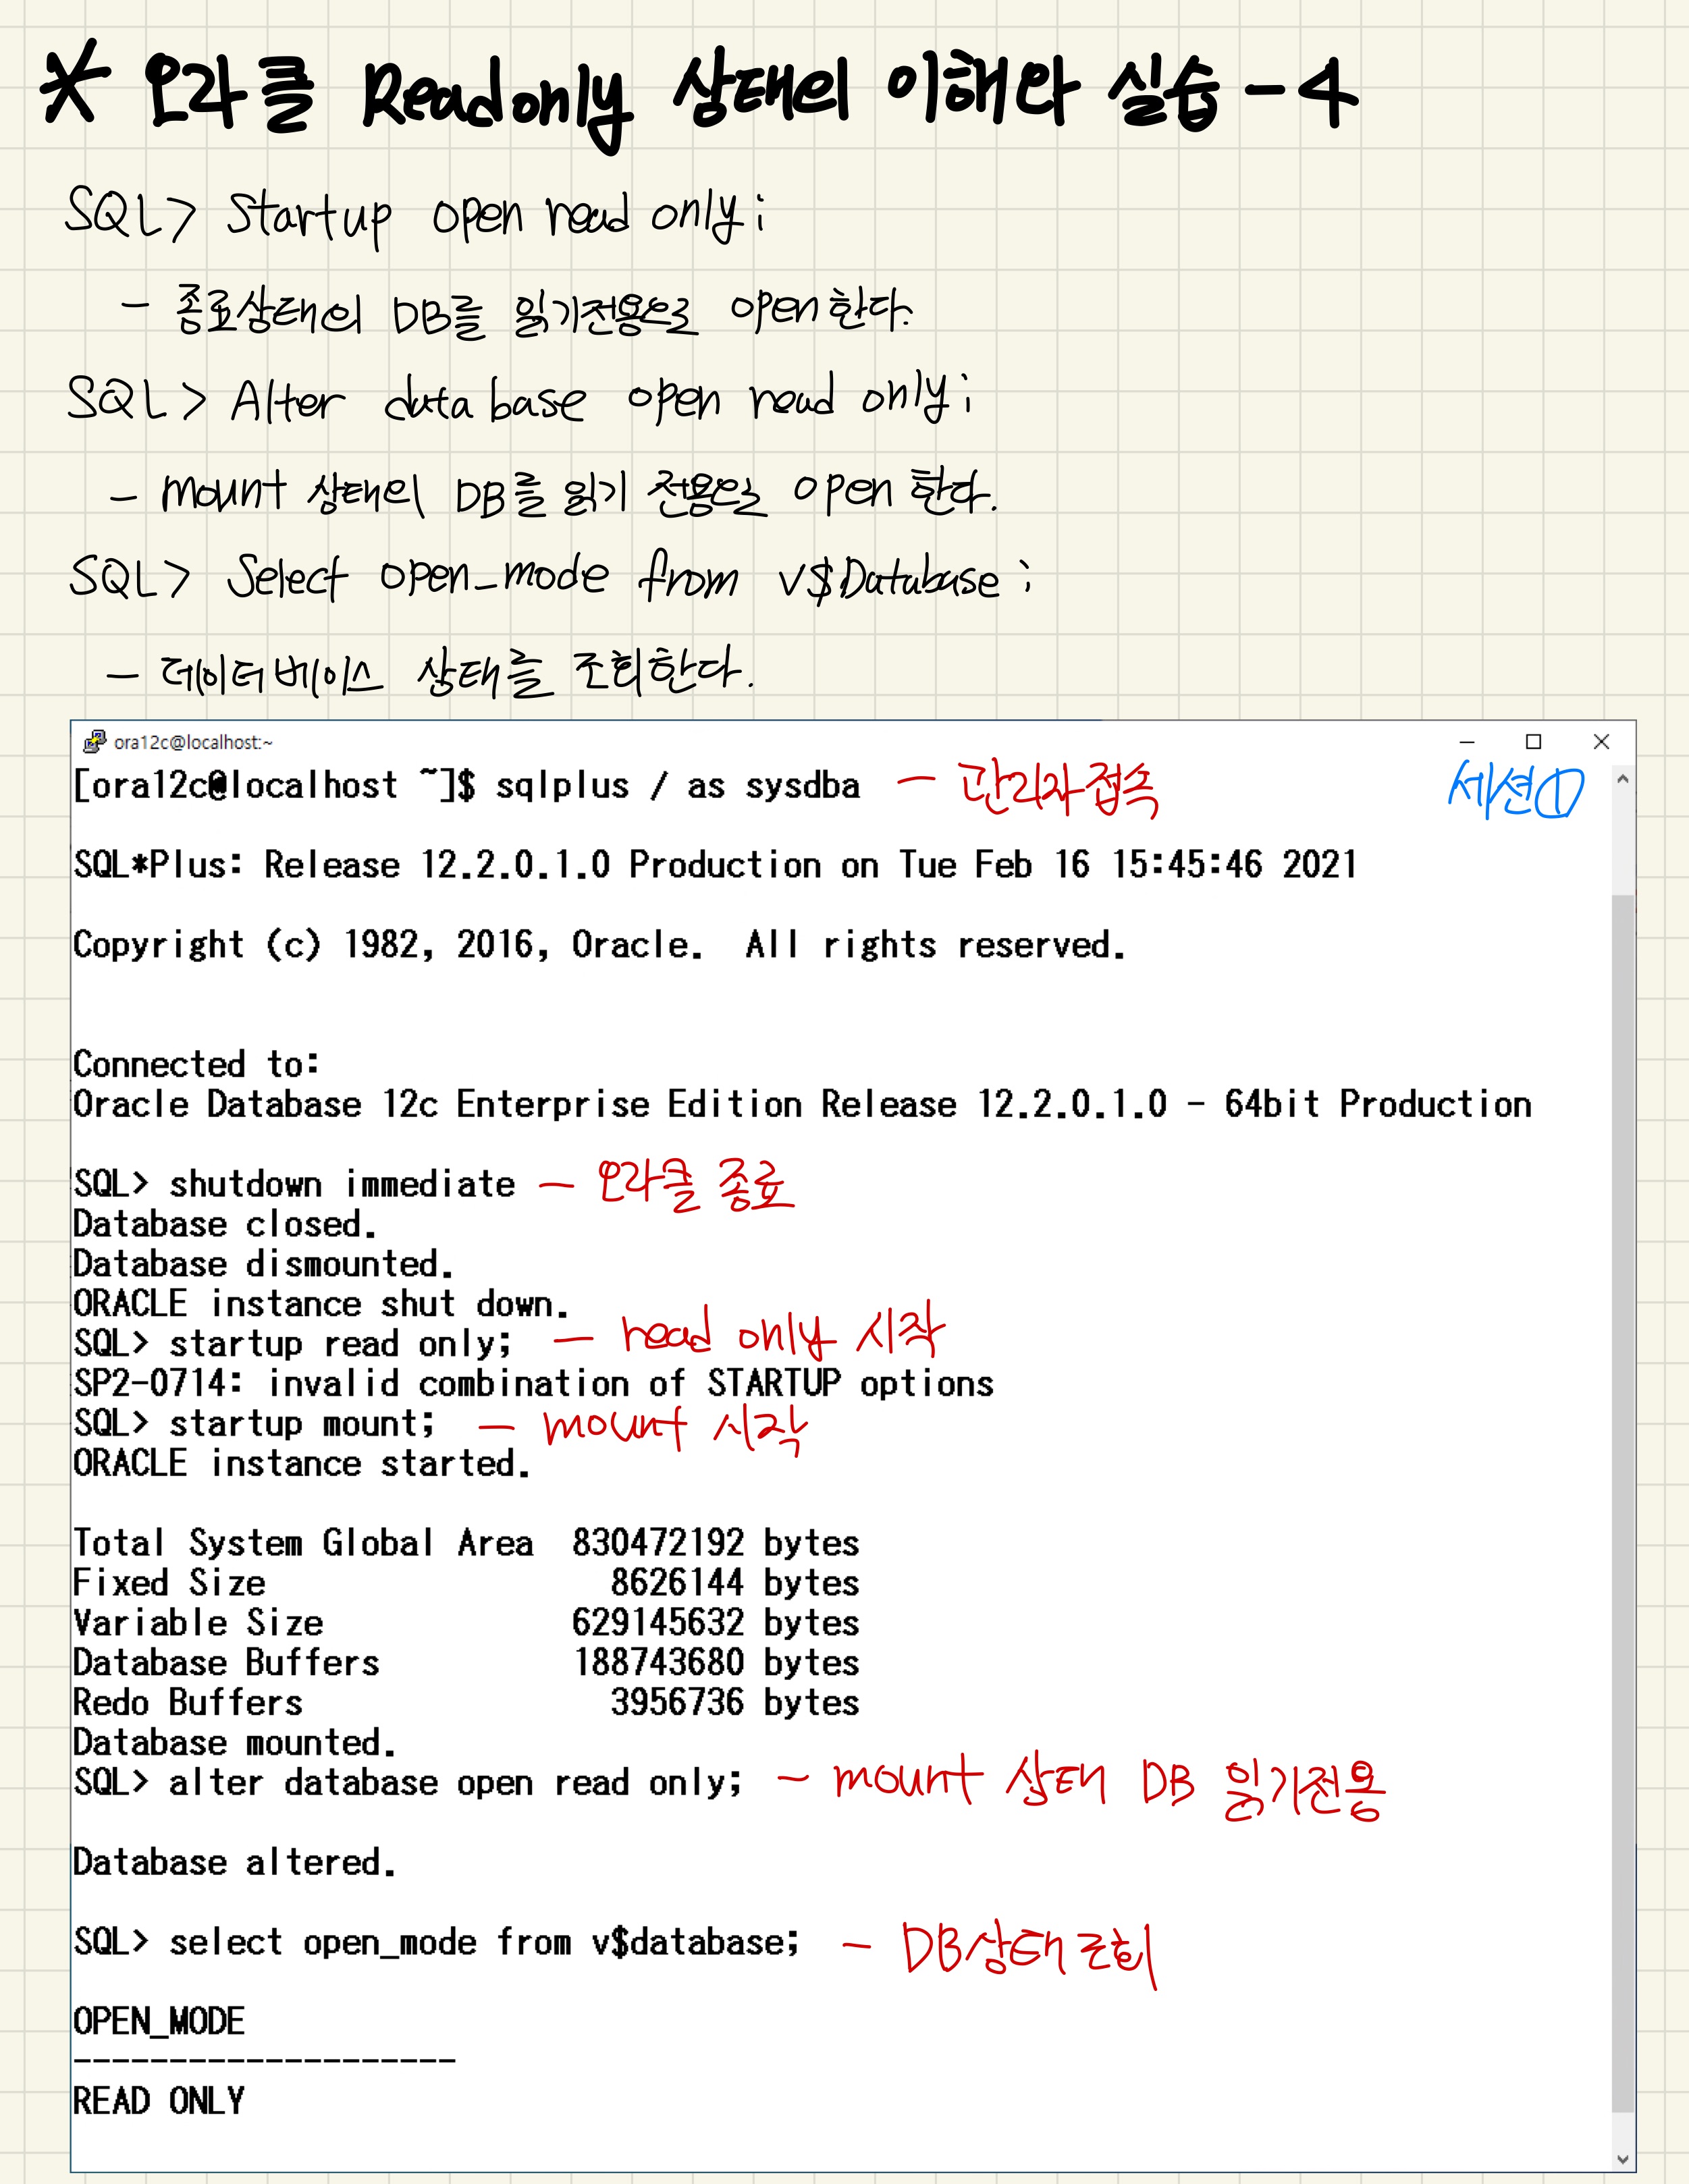 * 오라클 Readonly 상태의 이해와 실습 - 4
SQL> Startup open read only;
- 종료상태의 DB를 읽기전용으로 open한다.
SQL> Alter database open read only;
- mount 상태의 DB를 읽기 전용으로 open 한다.
SQL> Select open_mode from v$Database;
- 데이터베이스 상태를 조회한다.
ora12c@localhost:~
[ora12c@localhost ~]$ sqlplus / as sysdba - 관리자접속 세션①
SQL*Plus: Release 12.2.0.1.0 Production on Tue Feb 16 15:45:46 2021
Copyright (c) 1982, 2016, Oracle.  All rights reserved.
Connected to:
Oracle Database 12c Enterprise Edition Release 12.2.0.1.0 - 64bit Production
SQL> shutdown immediate - 오라클 종료
Database closed.
Database dismounted.
ORACLE instance shut down.
SQL> startup read only; - read only 시작
SP2-0714: invalid combination of STARTUP options
SQL> startup mount; - mount 시작
ORACLE instance started.
Total System Global Area  830472192 bytes
Fixed Size                  8626144 bytes
Variable Size             629145632 bytes
Database Buffers          188743680 bytes
Redo Buffers                3956736 bytes
Database mounted.
SQL> alter database open read only; - mount 상태 DB 읽기전용
Database altered.
SQL> select open_mode from v$database; - DB상태 조회
OPEN_MODE
--------------------
READ ONLY